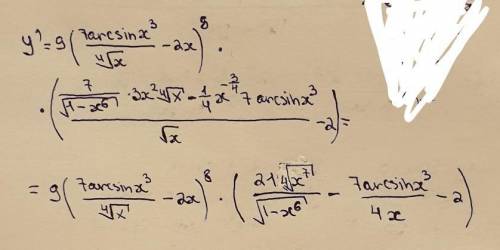 y' = 9 ( 7arcsinx³ / ⁴√x − 2x )⁸ ·
· ( ( 7 / √(1−x⁶) · 3x² ⁴√x − 1/4 x^(−3/4) 7arcsinx³ ) / √x − 2 ) =
= 9 ( 7arcsinx³ / ⁴√x − 2x )⁸ · ( 21 ⁴√(x⁷) / √(1−x⁶) − 7arcsinx³ / 4x − 2 )